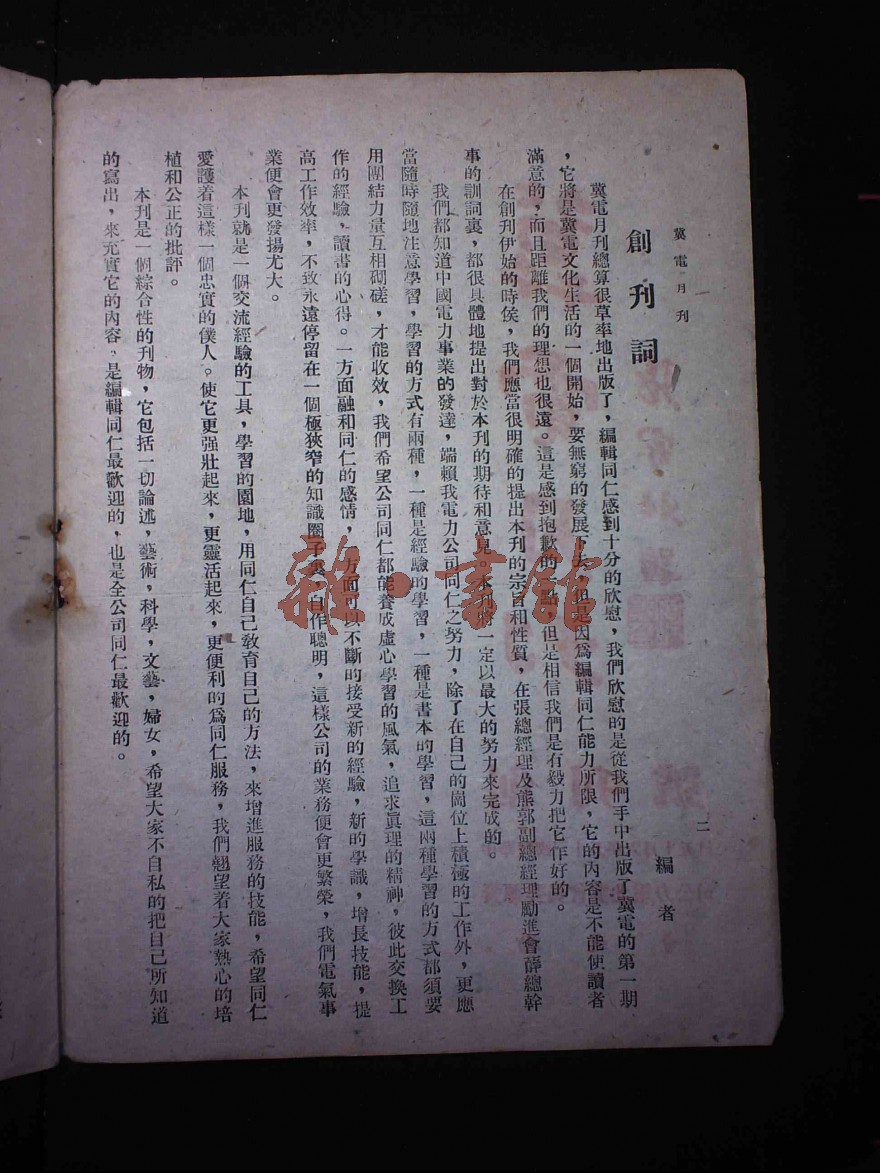 冀電月刊
二
創刊詞
編者
冀電月刊總算很草率地出版了，編輯同仁感到十分的欣慰，我們欣慰的是從我們手中出版了冀電的第一期
，它將是冀電文化生活的一個開始，要無窮的發展下去，但是因爲編輯同仁能力所限，它的內容是不能使讀者
滿意的，而且距離我們的理想也很遠。這是感到抱歉的一點，但是相信我們是有毅力把它作好的。
在創刊伊始的時侯，我們應當很明確的提出本刊的宗旨和性質，在張總經理及熊郭副總經理勵進會薛總幹
事的訓詞裏，都很具體地提出對於本刊的期待和意見。本刊將一定以最大的努力來完成的。
我們都知道中國電力事業的發達，端賴我電力公司同仁之努力，除了在自己的崗位上積極的工作外，更應
當隨時隨地注意學習，學習的方式有兩種，一種是經驗的學習，一種是書本的學習，這兩種學習的方式都須要
用團結力量互相砌磋，才能收效，我們希望公司同仁都能養成虛心學習的風氣，追求眞理的精神，彼此交換工
作的經驗，讀書的心得。一方面融和同仁的感情，一方面可以不斷的接受新的經驗，新的學識，增長技能，提
高工作效率，不致永遠停留在一個極狹窄的知識圈子裏，自作聰明，這樣公司的業務便會更繁榮，我們電氣事
業便會更發揚尤大。
本刊就是一個交流經驗的工具，學習的園地，用同仁自己敎育自己的方法，來增進服務的技能，希望同仁
愛護着這樣一個忠實的僕人。使它更强壯起來，更靈活起來，更便利的爲同仁服務，我們翹望着大家熱心的培
植和公正的批評。
本刊是一個綜合性的刊物，它包括一切論述，藝術，科學，文藝，婦女，希望大家不自私的把自己所知道
的寫出，來充實它的內容，是編輯同仁最歡迎的，也是全公司同仁最歡迎的。
雜·書館